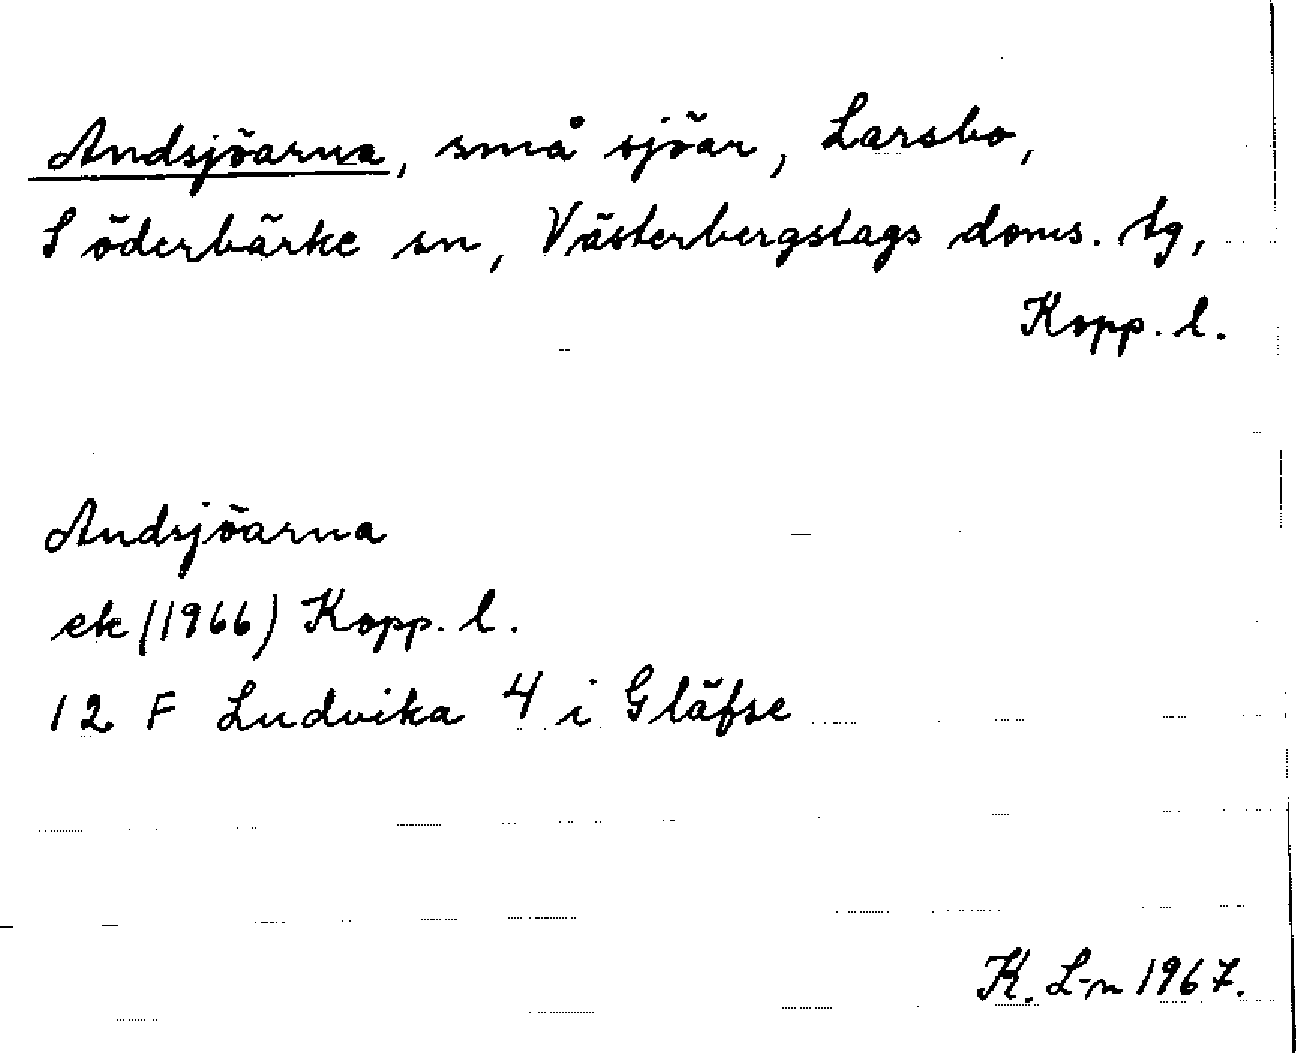 Andsjöarna, små sjöar, Larsbo,
Söderbärke sn, Västerbergslags doms. tg,
Kopp. l.
Andsjöarna
ek (1966) Kopp. l.
12 F Ludvika 4 i Gläfse
K. L-n 1967.